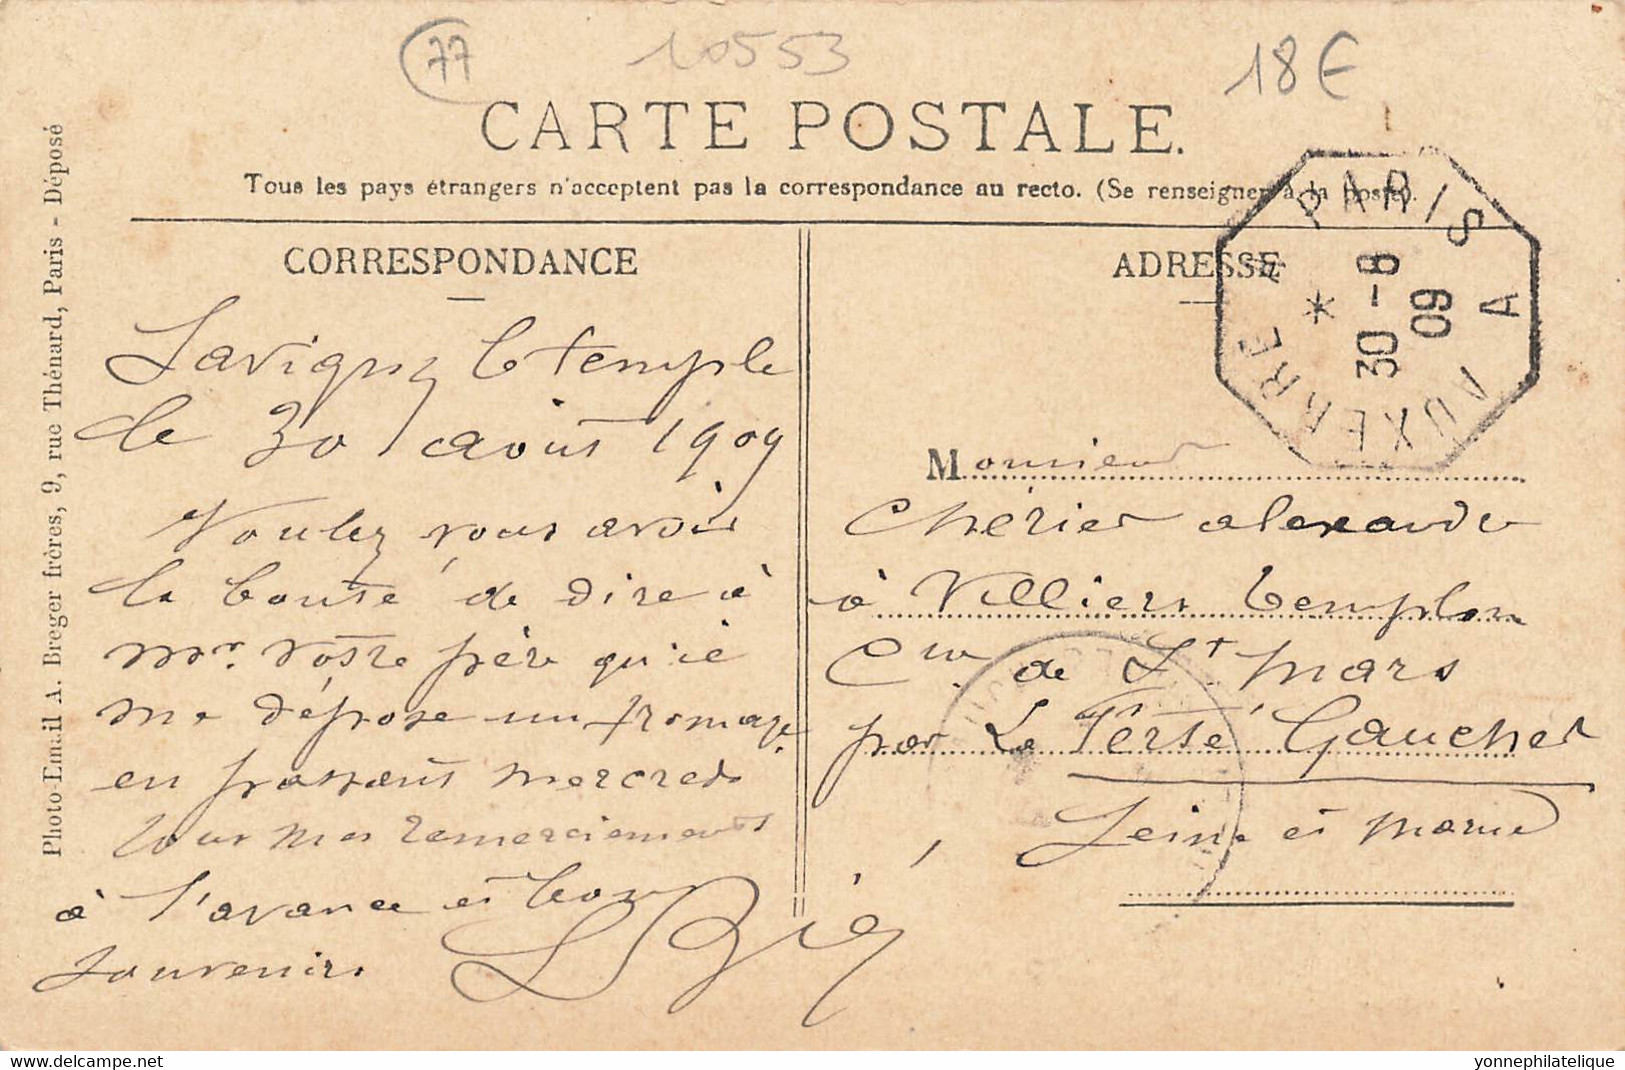 77
10553
18€
CARTE POSTALE.
Tous les pays étrangers n'acceptent pas la correspondance au recto. (Se renseigner à la poste).
Photo-Email A. Breger frères, 9, rue Thénard, Paris - Déposé
CORRESPONDANCE
Savigny le temple
le 30 août 1909
Voulez vous avoir
la bonté de dire à
Mr. votre père qu'ie
me dépose un fromage
en passant mercredi
tous mes remerciements
à l'avance et bon
souvenirs
ADRESSE
PARIS A AUXERRE A
*
30 -8
09
Monsieur
Cherier alexandre
à Villiers templon
Cne. de St mars
par La Ferté Gaucher
Seine et marne
Delcampe.net
yonnephilatelique